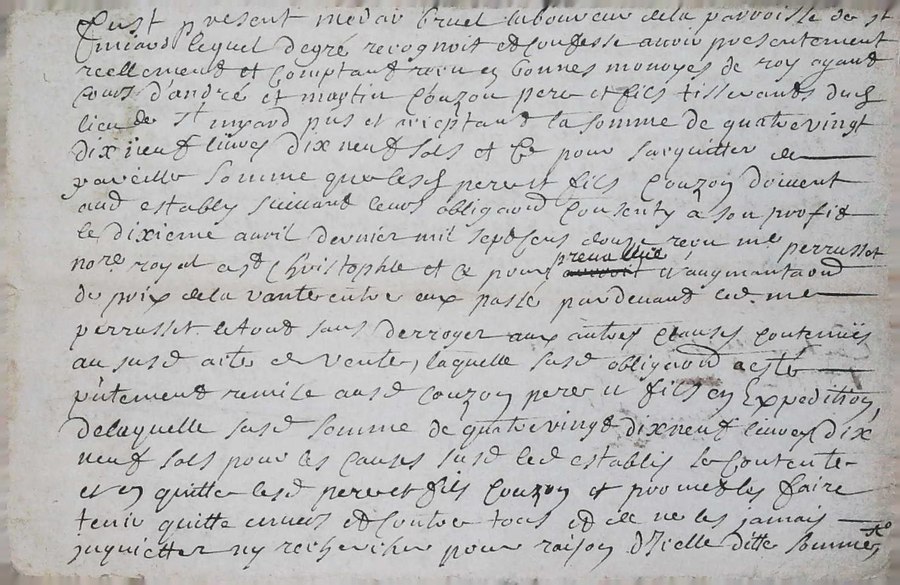 fust present medar bruel laboureur de la parroisse de st
miard lequel degré recognoit et confesse avoir presentement
reellement et comptant receu en bonnes monoyes de roy ayant
cours d'andré et martin Couzon pere et fils tisserands dud
lieu de St myard pns et acceptant la somme de quatrevingt
dix neuf livres dix neuf sols et Ce pour sacquitter de
pareille somme que lesd pere et fils Couzon doivent
aud estably suivant leurs obligaond Consenty a son profit
le dixieme avril dernier mil sept cens douze receu me perrussot
nore royal a st Christophle et ce pour preuallue d'augmantaond
du prix de la vante entre eux passé pardevand led me
perrussot le tout sans derroger aux autres clauses contenües
au susd acte de vente, laquelle susd obligaond a esté
pñtement remise ausd couzon pere et fils en Expedition,
de laquelle susd somme de quatrevingt dixneuf livres dix
neuf sols pour les causes susd led estably se contente
et en quitte lesd pere et fils Couzon et promet les faire
tenir quitte envers et contre tous et de ne les jamais
inquietter ny rechercher pour raison d'Icelle ditte somme,